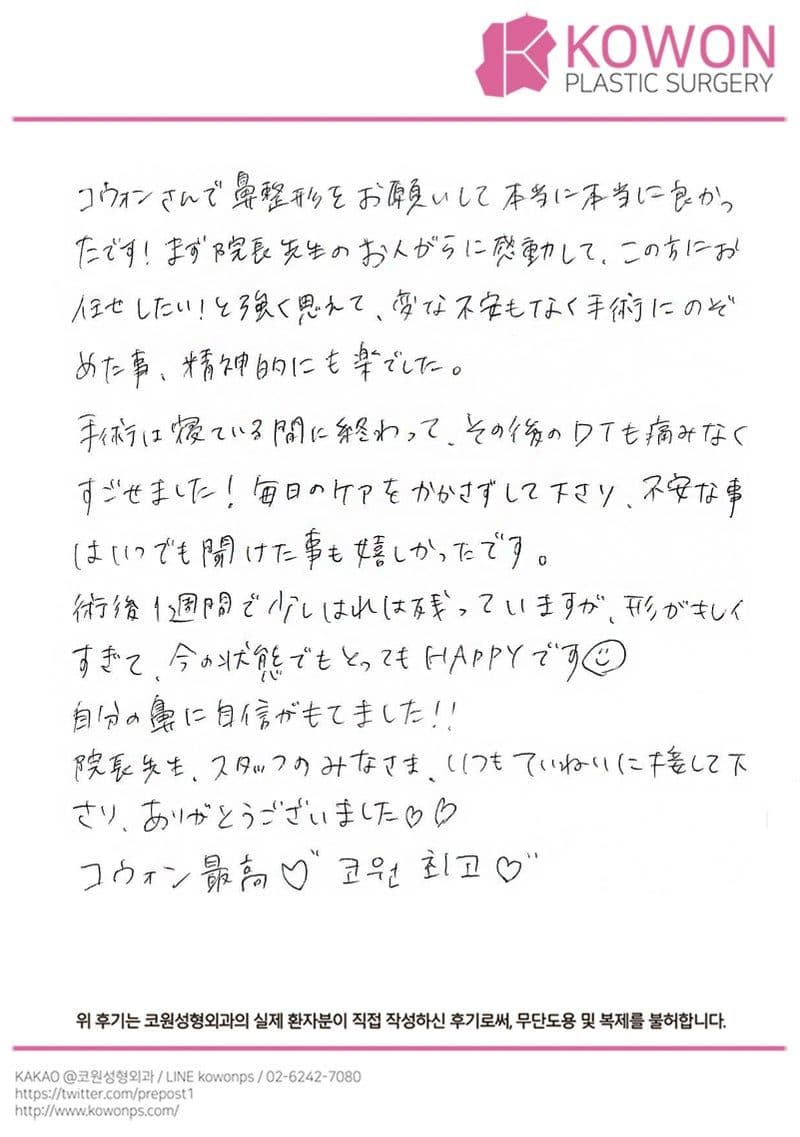 KOWON
PLASTIC SURGERY
コウォンさんで鼻整形をお願いして本当に本当に良かっ
たです！まず院長先生のお人がらに感動して、この方にお
任せしたい！と強く思えて、変な不安もなく手術にのぞ
めた事、精神的にも楽でした。
手術は寝ている間に終わって、その後のDTも痛みなく
すごせました！毎日のケアをかかさずして下さり、不安な事
はいつでも聞けた事も嬉しかったです。
術後1週間で少しはれは残っていますが、形がキレイ
すぎて、今の状態でもとってもHAPPYです
自分の鼻に自信がもてました！！
院長先生、スタッフのみなさま、いつもていねいに接して下
さり、ありがとうございました♡♡
コウォン最高♡" 코원 최고♡"
위 후기는 코원성형외과의 실제 환자분이 직접 작성하신 후기로써, 무단도용 및 복제를 불허합니다.
KAKAO @코원성형외과 / LINE kowonps / 02-6242-7080
https://twitter.com/prepost1
http://www.kowonps.com/